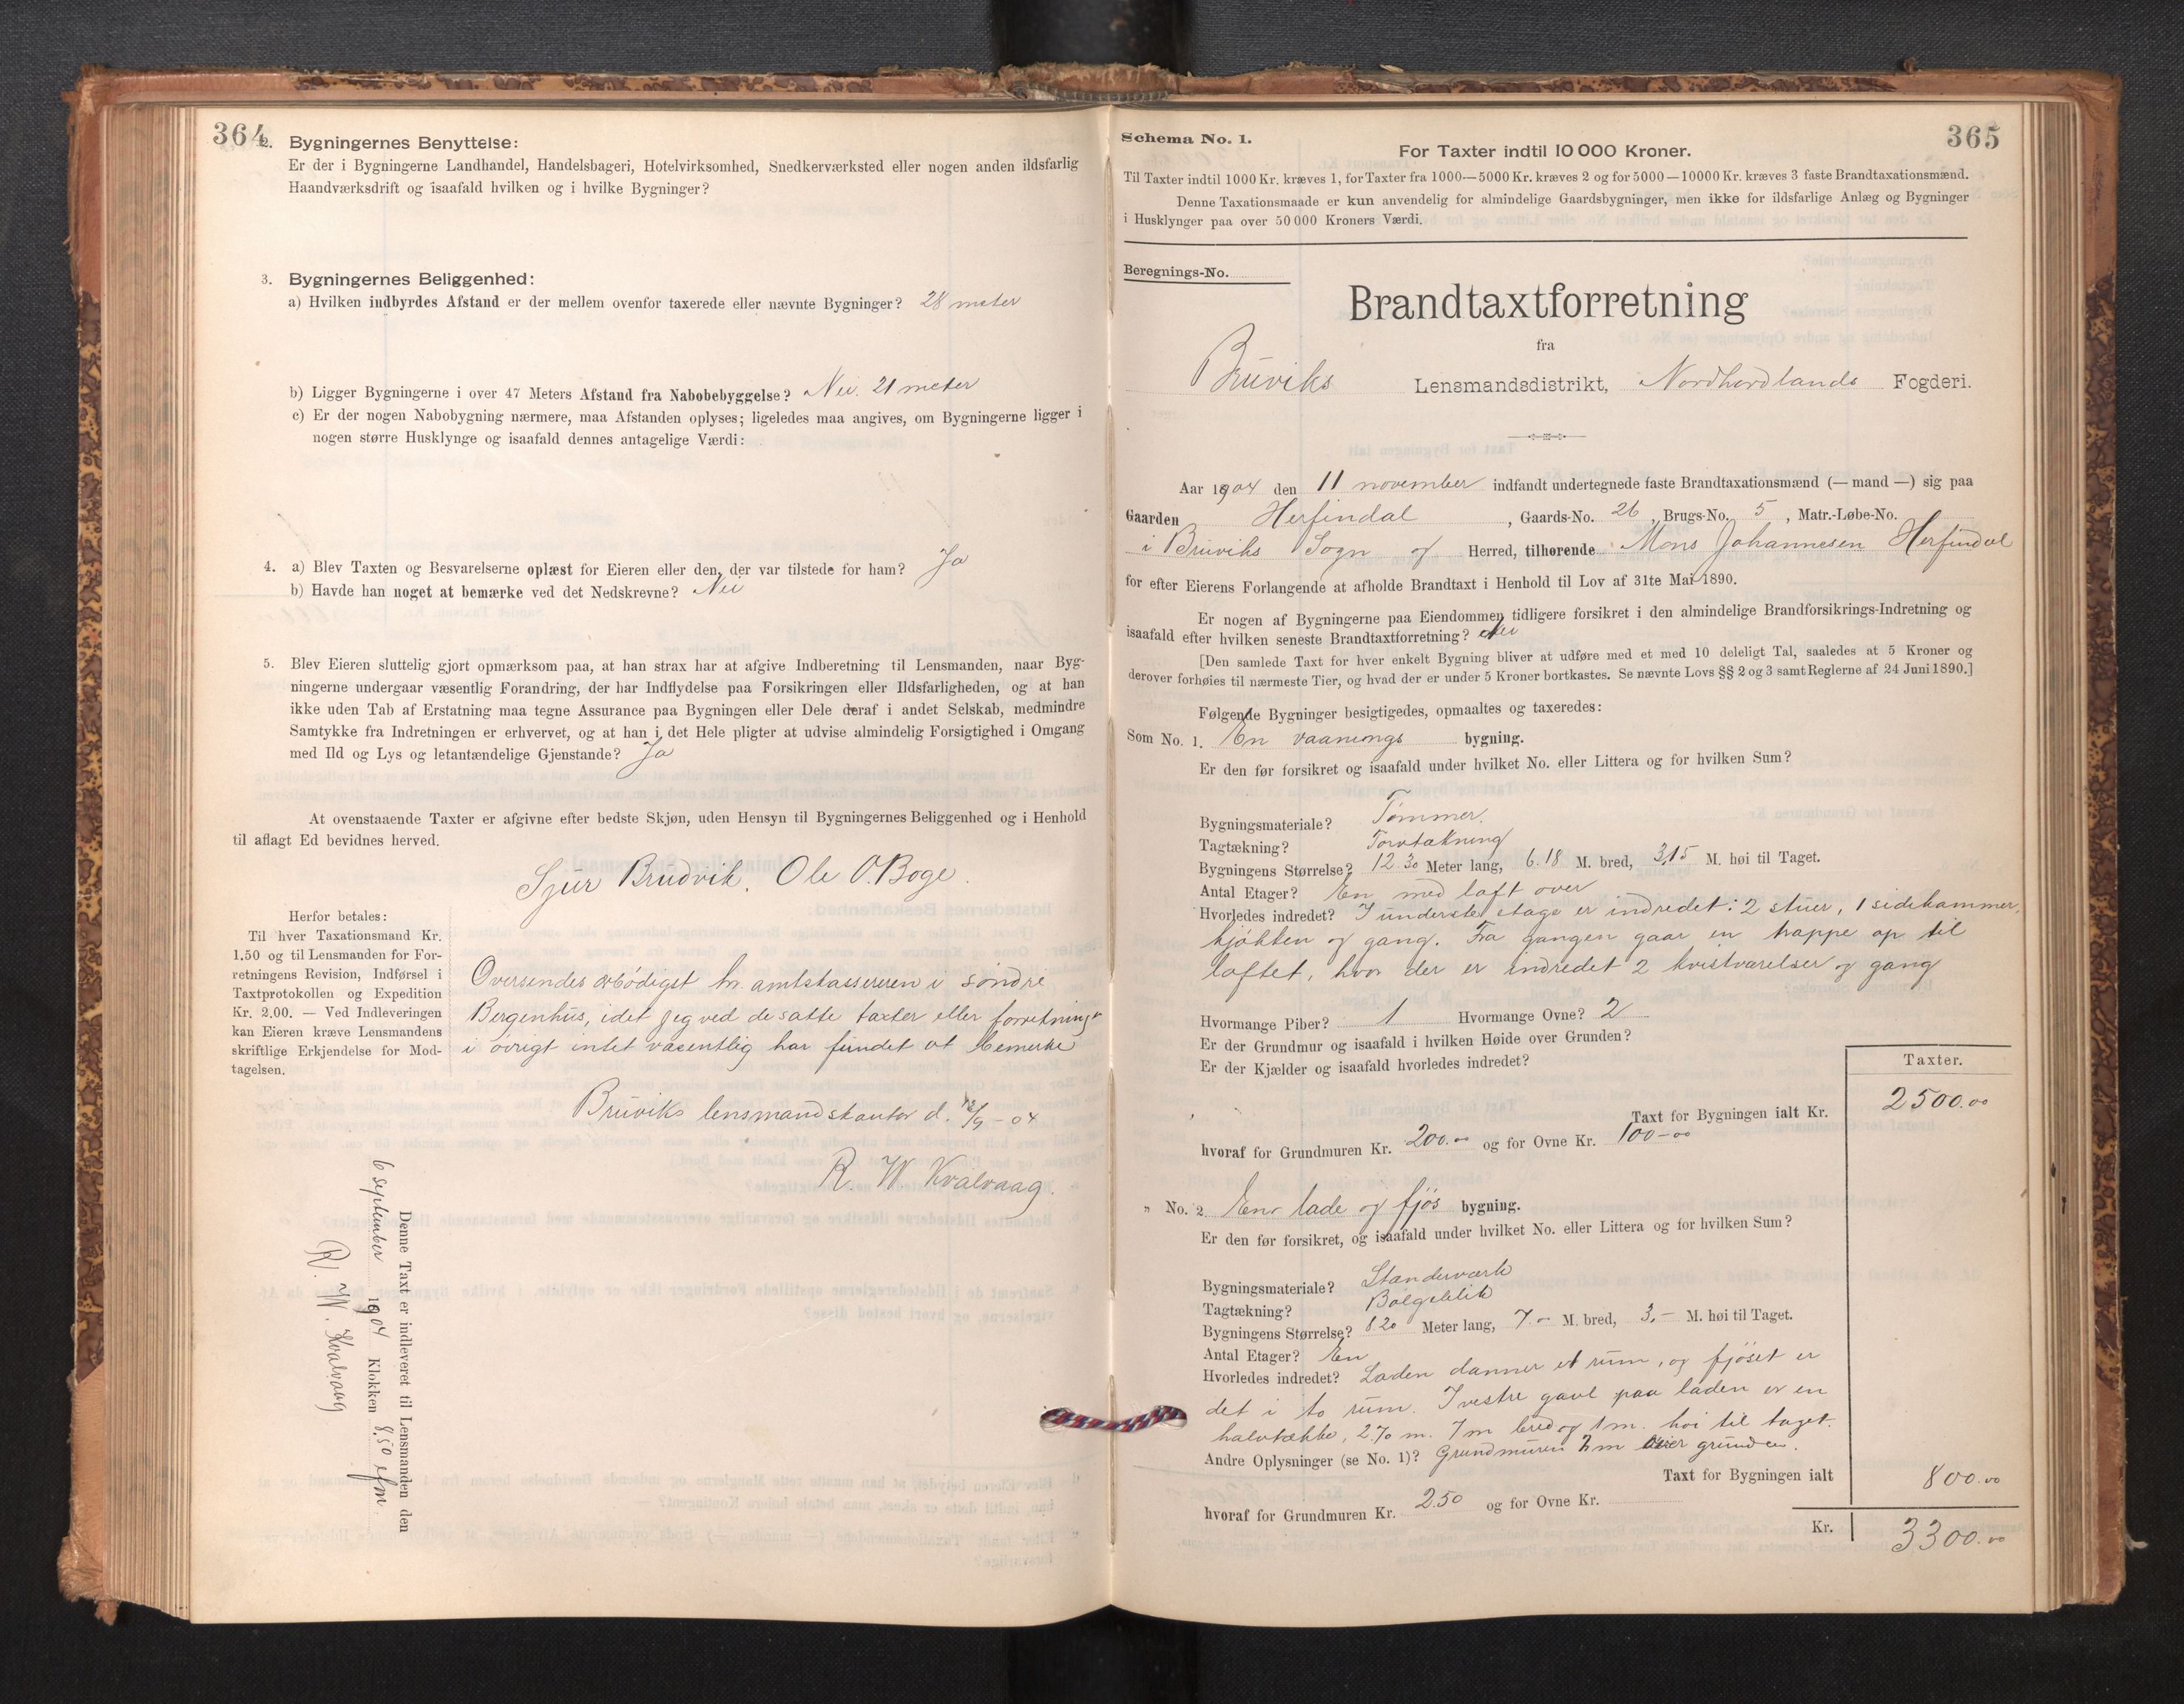 364
2. Bygningernes Benyttelse:
Er der i Bygningerne Landhandel, Handelsbageri, Hotelvirksomhed, Snedkerværksted eller nogen anden ildsfarlig
Haandværksdrift og isaafald hvilken og i hvilke Bygninger?
3. Bygningernes Beliggenhed:
a) Hvilken indbyrdes Afstand er der mellem ovenfor taxerede eller nævnte Bygninger? 28 meter
b) Ligger Bygningerne i over 47 Meters Afstand fra Nabobebyggelse? Nei. 21 meter
c) Er der nogen Nabobygning nærmere, maa Afstanden oplyses; ligeledes maa angives, om Bygningerne ligger i
nogen større Husklynge og isaafald dennes antagelige Værdi:
4. a) Blev Taxten og Besvarelserne oplæst for Eieren eller den, der var tilstede for ham? Ja
b) Havde han noget at bemærke ved det Nedskrevne? Nei
5. Blev Eieren sluttelig gjort opmærksom paa, at han strax har at afgive Indberetning til Lensmanden, naar Byg-
ningerne undergaar væsentlig Forandring, der har Indflydelse paa Forsikringen eller Ildsfarligheden, og at han
ikke uden Tab af Erstatning maa tegne Assurance paa Bygningen eller Dele deraf i andet Selskab, medmindre
Samtykke fra Indretningen er erhvervet, og at han i det Hele pligter at udvise almindelig Forsigtighed i Omgang
med Ild og Lys og letantændelige Gjenstande? Ja
At ovenstaaende Taxter er afgivne efter bedste Skjøn, uden Hensyn til Bygningernes Beliggenhed og i Henhold
til aflagt Ed bevidnes herved.
Sjur Brudvik. Ole O. Boge.
Herfor betales:
Til hver Taxationsmand Kr.
1.50 og til Lensmanden for For-
retningens Revision, Indførsel i
Taxtprotokollen og Expedition
Kr. 2.00. — Ved Indleveringen
kan Eieren kræve Lensmandens
skriftlige Erkjendelse for Mod-
tagelsen.
Oversendes ærbödigst hr. amtskassereren i söndre
Bergenhus, idet jeg ved de satte taxter eller forretning
i övrigt intet væsentlig har fundet at bemerke
Bruviks lensmandskontor d. 12/9 - 04
R. W. Kvalvaag.
Denne Taxt er indleveret til Lensmanden den
6 september 1904 Klokken 8,50 efm.
R. W. Kvalvaag
365
Schema No. 1.
For Taxter indtil 10 000 Kroner.
Til Taxter indtil 1000 Kr. kræves 1, for Taxter fra 1000—5000 Kr. kræves 2 og for 5000—10000 Kr. kræves 3 faste Brandtaxationsmænd.
Denne Taxationsmaade er kun anvendelig for almindelige Gaardsbygninger, men ikke for ildsfarlige Anlæg og Bygninger
i Husklynger paa over 50 000 Kroners Værdi.
Beregnings-No.
Brandtaxtforretning
fra
Bruviks Lensmandsdistrikt, Nordhordlands Fogderi.
Aar 1904 den 11 november indfandt undertegnede faste Brandtaxationsmænd (— mand —) sig paa
Gaarden Herfindal, Gaards-No. 26, Brugs-No. 5, Matr.-Løbe-No.
i Bruviks Sogn og Herred, tilhørende Mons Johannesen Herfindal
for efter Eierens Forlangende at afholde Brandtaxt i Henhold til Lov af 31te Mai 1890.
Er nogen af Bygningerne paa Eiendommen tidligere forsikret i den almindelige Brandforsikrings-Indretning og
isaafald efter hvilken seneste Brandtaxtforretning? Nei
[Den samlede Taxt for hver enkelt Bygning bliver at udføre med et med 10 deleligt Tal, saaledes at 5 Kroner og
derover forhøies til nærmeste Tier, og hvad der er under 5 Kroner bortkastes. Se nævnte Lovs §§ 2 og 3 samt Reglerne af 24 Juni 1890.]
Følgende Bygninger besigtigedes, opmaaltes og taxeredes:
Som No. 1. En vaanings bygning.
Er den før forsikret og isaafald under hvilket No. eller Littera og for hvilken Sum?
Bygningsmateriale? Tømmer.
Tagtækning? Torvtækning
Bygningens Størrelse? 12.30 Meter lang, 6.18 M. bred, 3,15 M. høi til Taget.
Antal Etager? En med loft over
Hvorledes indredet? I underste etage er indredet: 2 stuer, 1 sidekammer,
kjökken og gang. Fra gangen gaar en trappe op til
loftet, hvor der er indredet 2 kvistværelser og gang
Hvormange Piber? 1 Hvormange Ovne? 2
Er der Grundmur og isaafald i hvilken Høide over Grunden?
Er der Kjælder og isaafald hvorledes indredet?
Taxter.
Taxt for Bygningen ialt Kr. 2500.00
hvoraf for Grundmuren Kr. 200.00 og for Ovne Kr. 100-00
„ No. 2. En lade og fjös bygning.
Er den før forsikret, og isaafald under hvilket No. eller Littera og for hvilken Sum?
Bygningsmateriale? Standerværk
Tagtækning? Bølgeblik
Bygningens Størrelse? 8.20 Meter lang, 7.- M. bred, 3.- M. høi til Taget.
Antal Etager? En
Hvorledes indredet? Laden danner et rum, og fjöset er
det i to rum. I vestre gavl paa laden er en
halvtække, 2.70 m. 7 m bred og 1 m. höi til taget.
Andre Oplysninger (se No. 1)? Grundmuren 2m over grunden.
Taxt for Bygningen ialt 800.00
hvoraf for Grundmuren Kr. 250 og for Ovne Kr.
Kr. 3300.00